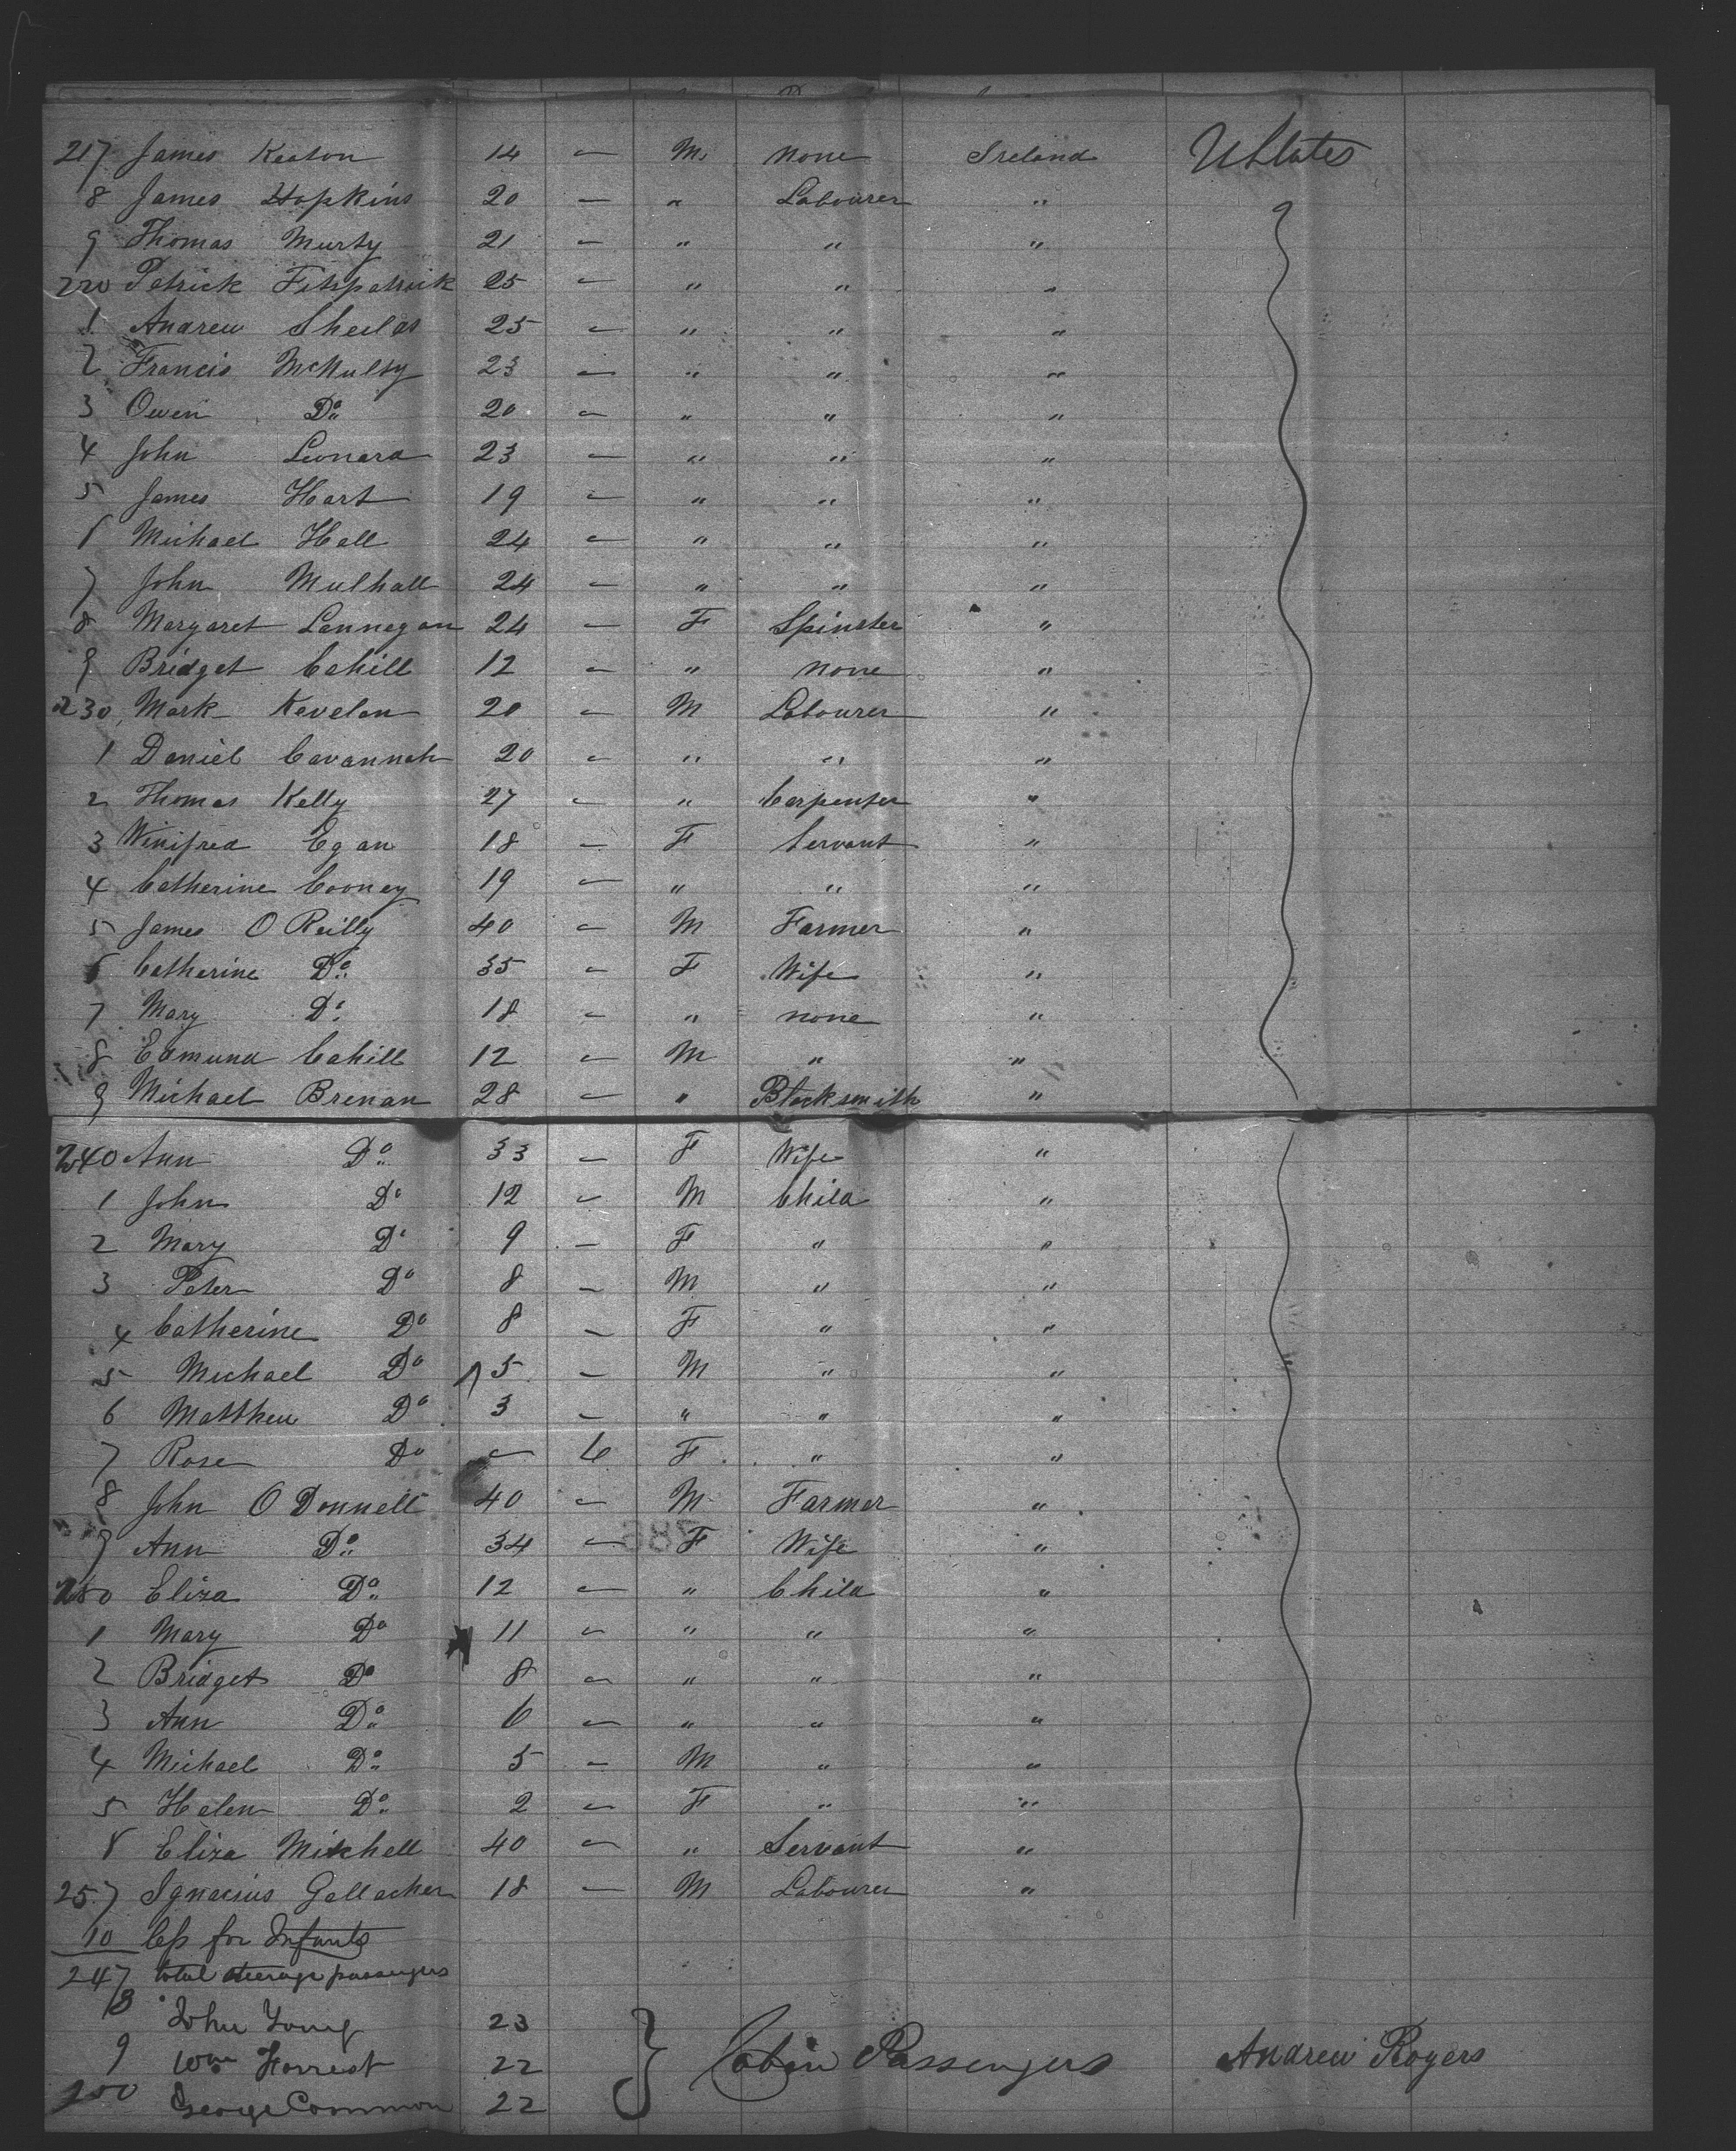 217 James Keaton 14 — M. none Ireland UStates
8 James Hopkins 20 — " Labourer "
9 Thomas Murty 21 — " " "
220 Patrick Fitzpatrick 25 — " " "
1 Andrew Sheilds 25 — " " "
2 Francis McNulty 23 — " " "
3 Owen Do 20 — " " "
4 John Leonard 23 — " " "
5 James Hart 19 — " " "
6 Michael Hall 24 — " " "
7 John Mulhall 24 — " " "
8 Margaret Lannegan 24 — F Spinster "
9 Bridget Cahill 12 — " none "
230 Mark Kevelan 20 — M Labourer "
1 Daniel Cavannah 20 — " " "
2 Thomas Kelly 27 — " Carpenter "
3 Winifred Egan 18 — F Servant "
4 Catherine Cooney 19 — " " "
5 James O Reilly 40 — M Farmer "
6 Catherine Do 35 — F Wife "
7 Mary Do 18 — " none "
8 Edmund Cahill 12 — M " "
9 Michael Brenan 28 — " Blacksmith "
240 Ann Do 33 — F Wife "
1 John Do 12 — M Child "
2 Mary Do 9 — F " "
3 Peter Do 8 — M " "
4 Catherine Do 8 — F " "
5 Michael Do 5 — M " "
6 Matthew Do 3 — " " "
7 Rose Do — 6 F " "
8 John O Donnell 40 — M Farmer "
9 Ann Do 34 — F Wife "
250 Eliza Do 12 — " Child "
1 Mary Do 11 — " " "
2 Bridget Do 8 — " " "
3 Ann Do 6 — " " "
4 Michael Do 5 — M " "
5 Helen Do 2 — F " "
6 Eliza Mitchell 40 — " Servant "
257 Ignacius Gallacher 18 — M Labourer "
10 less for Infants
247 total steerage passengers
8 John Young 23
9 Wm Forrest 22 Cabin Passengers Andrew Rogers
250 George Common 22